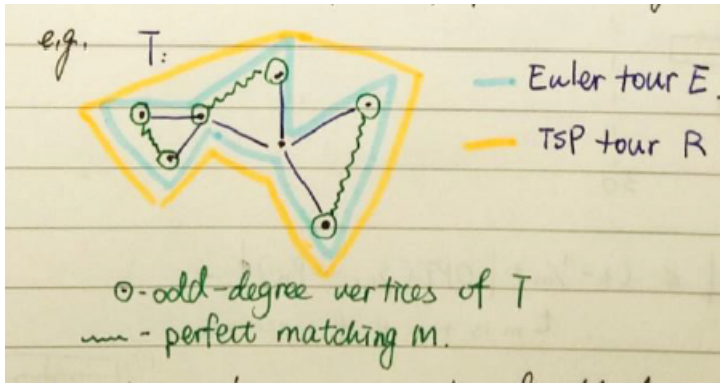 e.g. T:
Euler tour E.
TSP tour R
⊙-odd-degree vertices of T
- perfect matching M.